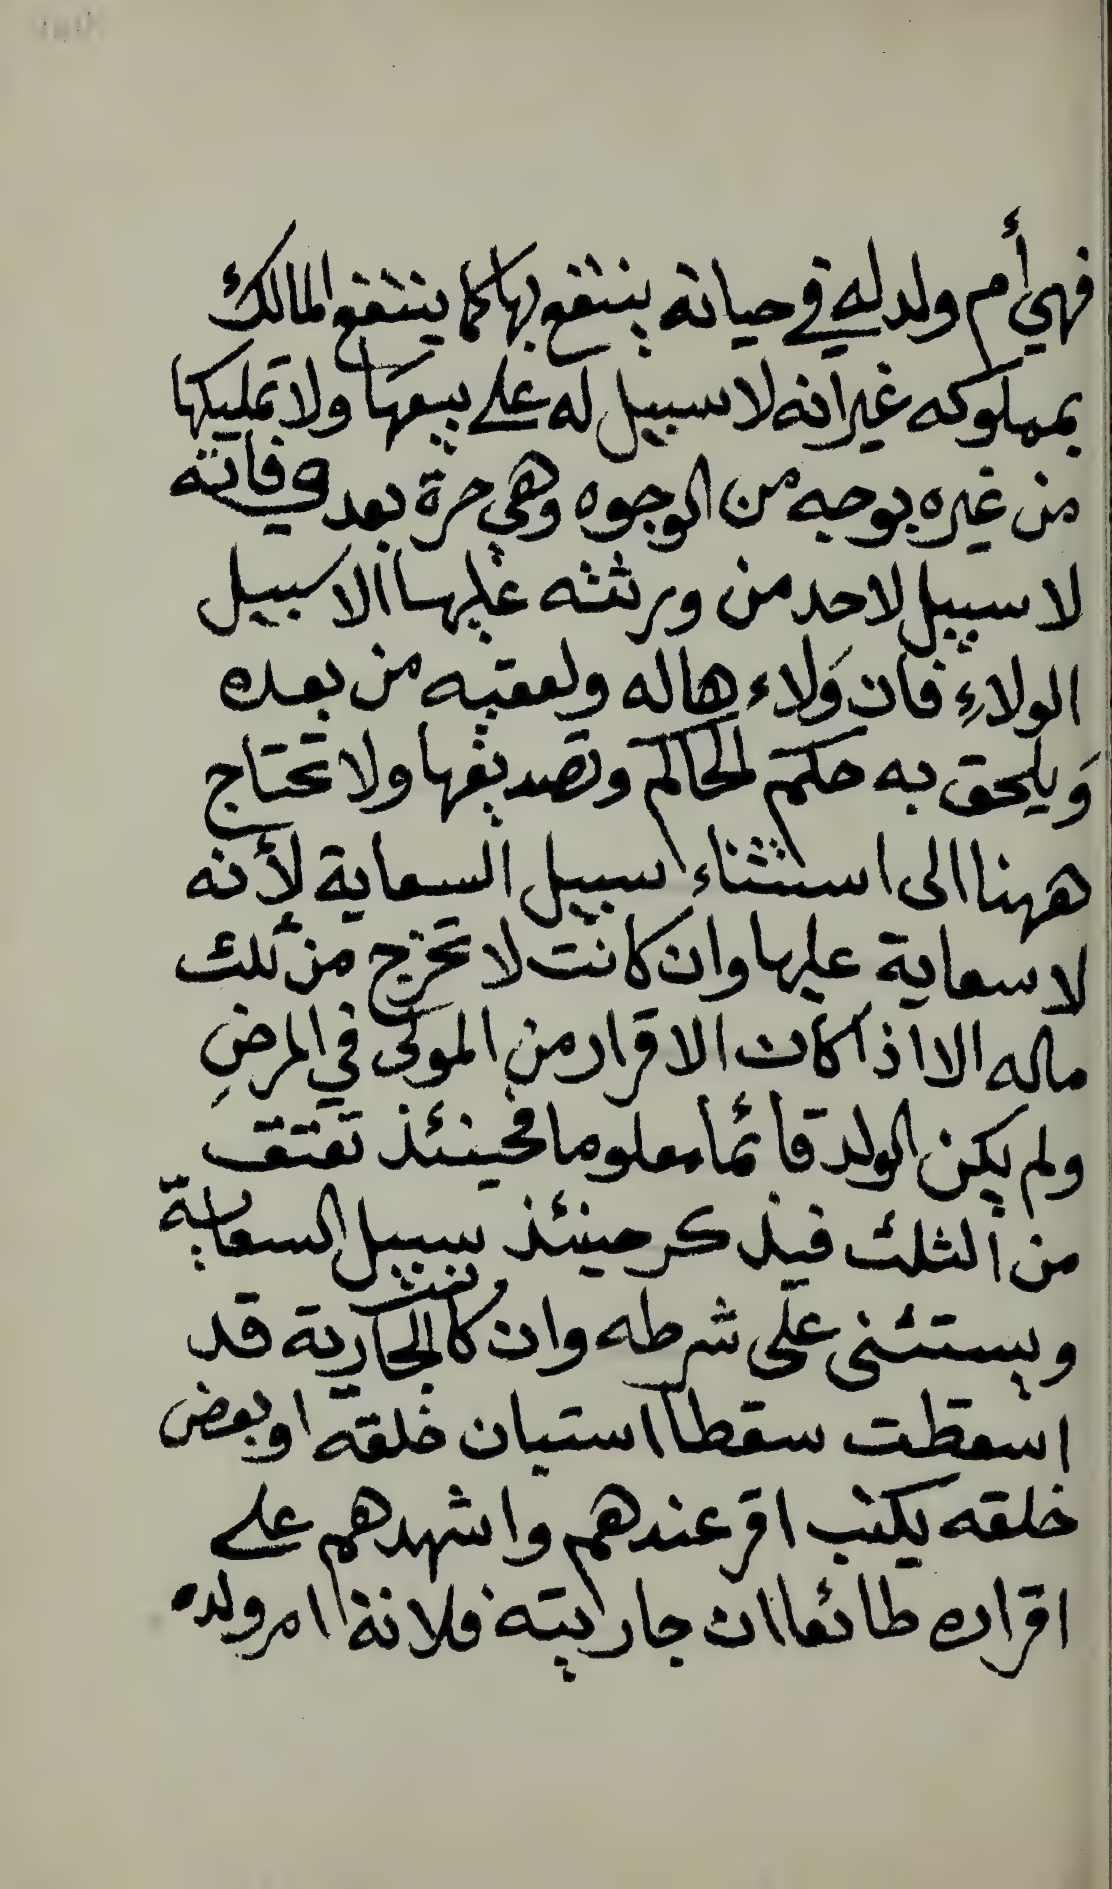 فهي أم ولد له في حياته ينتفع بها كما ينتفع المالك
بمملوكه غير انه لا سبيل له على بيعها ولا تمليكها
من غيره بوجه من الوجوه وهي حرة بعد وفاته
لا سبيل لاحد من ورثته عليها الا سبيل
الولاءِ فان وَلاء ها له ولعقبه من بعده
وَيلحق به حكم الحاكم وتصديقها ولا تحتاج
ههنا الى استثناء سبيل السعاية لأنه
لا سعاية عليها وان كانت لا تخرج من ثلث
ماله الا اذا كان الاقرار من المولى في المرضِ
ولم يكن الولد قائما معلوما فحينئذ تعتق
من الثلث فيذكر حينئذ سبيل السعاية
ويستثنى على شرطه وان كانت الجارية قد
اسقطت سقطا استبان خلقه او بعض
خلقه يكتب اقر عندهم واشهدهم على
اقراره طائعا ان جاريته فلانة ام ولده